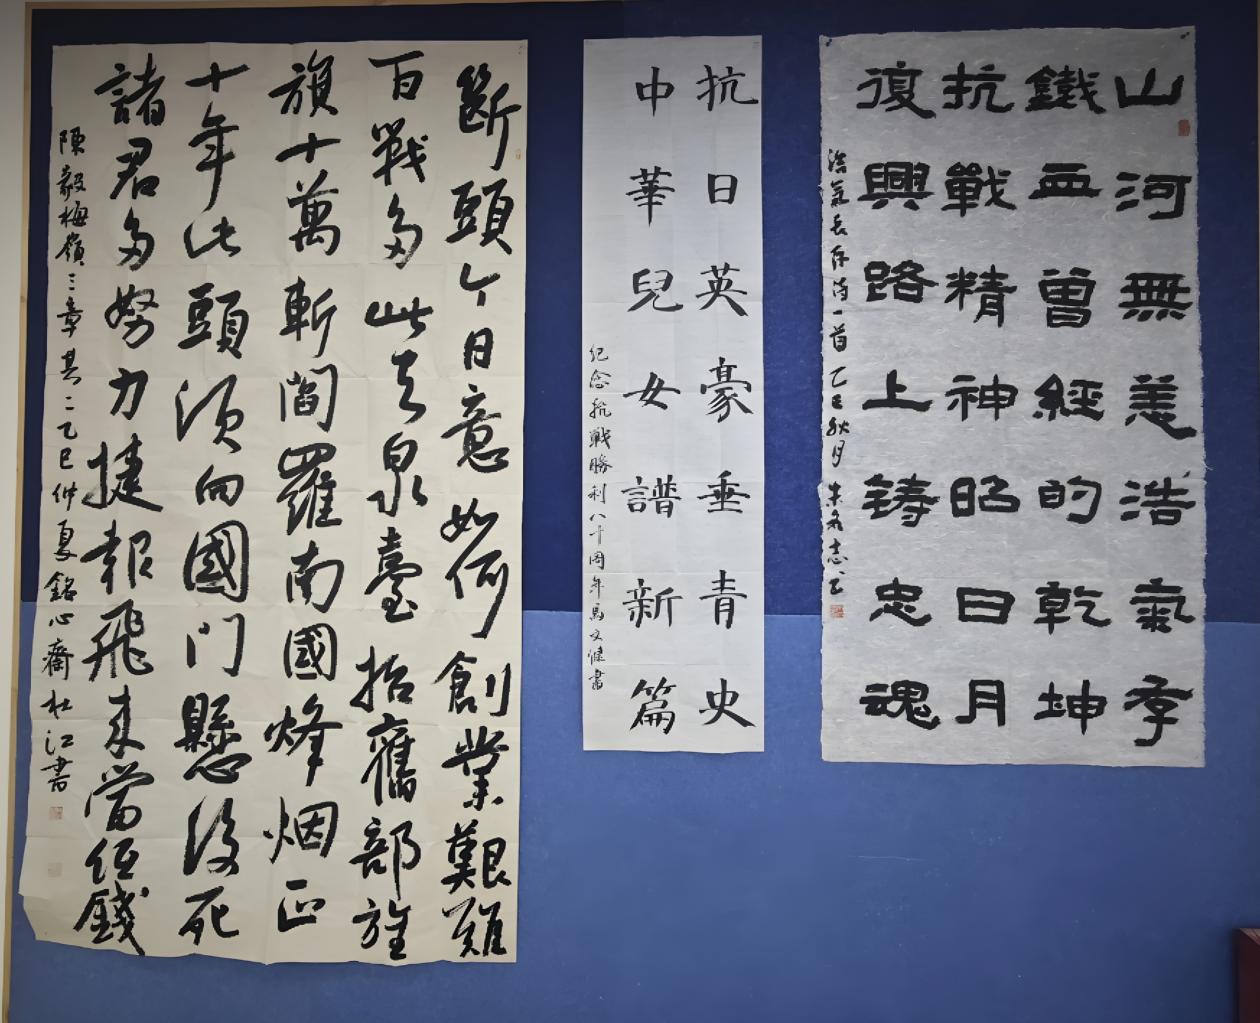 山河無恙浩氣存
鐵血曾經的乾坤
抗戰精神昭日月
復興路上铸忠魂
浩氣长存诗一首 乙巳秋月 朱志书
抗日英豪垂青史
中華兒女譜新篇
纪念抗戰勝利八十周年馬文書
斷頭今日意如何創業艱難
百戰多此去泉臺招舊部旌
旗十萬斬閻羅南國烽烟正
十年此頭須向國門懸後死
諸君多努力捷報飛来當纸錢
陳毅梅嶺三章其二乙巳仲夏銘心齋杜江書